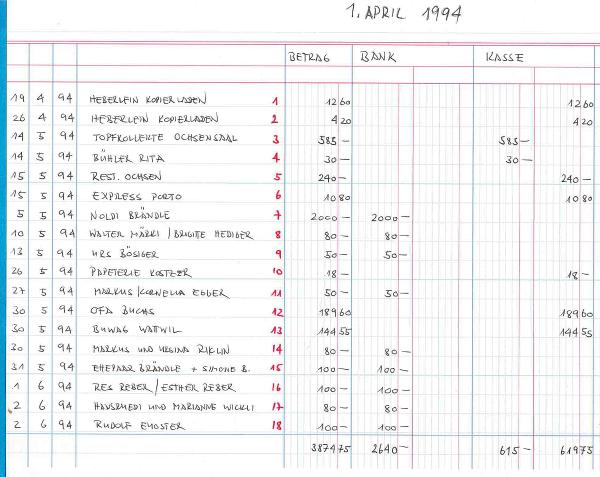 1. APRIL 1994
BETRAG BANK KASSE
19 4 94 HEBERLEIN KOPIERLADEN 1 12 60 12 60
26 4 94 HEBERLEIN KOPIERLADEN 2 4 20 4 20
14 5 94 TOPFKOLLEKTE OCHSENSAAL 3 585 – 585 –
14 5 94 BÜHLER RITA 4 30 – 30 –
15 5 94 REST. OCHSEN 5 240 – 240 –
15 5 94 EXPRESS PORTO 6 10 80 10 80
5 5 94 NOLDI BRÄNDLE 7 2000 – 2000 –
10 5 94 WALTER MÄRKI / BRIGITE HEDIGER 8 80 – 80 –
13 5 94 URS BÖSIGER 9 50 – 50 –
26 5 94 PAPETERIE 10 18 – 18 –
27 5 94 MARKUS / CORNELIA EGGER 11 50 – 50 –
30 5 94 OFA BUCHS 12 189 60 189 60
30 5 94 BUWAG WATTWIL 13 144 55 144 55
30 5 94 MARKUS UND URSINA RIKLIN 14 80 – 80 –
31 5 94 EHEPAAR BRÄNDLE + SIMONE B. 15 100 – 100 –
1 6 94 RES REBER / ESTHER REBER 16 100 – 100 –
2 6 94 HANSRUEDI UND MARIANNE WICKLI 17 80 – 80 –
2 6 94 RUDOLF 18 100 – 100 –
3874 75 2640 – 615 – 619 75